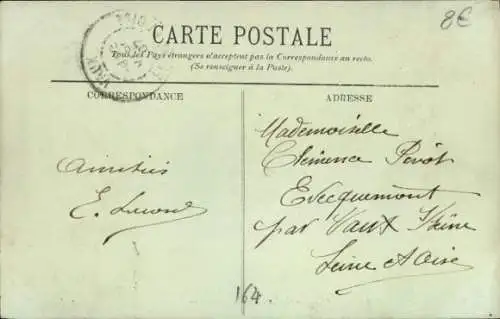 8€
CARTE POSTALE
Tous les Pays étrangers n'acceptent pas la Correspondance au recto.
(Se renseigner à la Poste).
CORRESPONDANCE
ADRESSE
Mademoiselle
Clémence
Evecquemont
par Vaux s/Seine
Seine et Oise
Amitiés
E.
164.